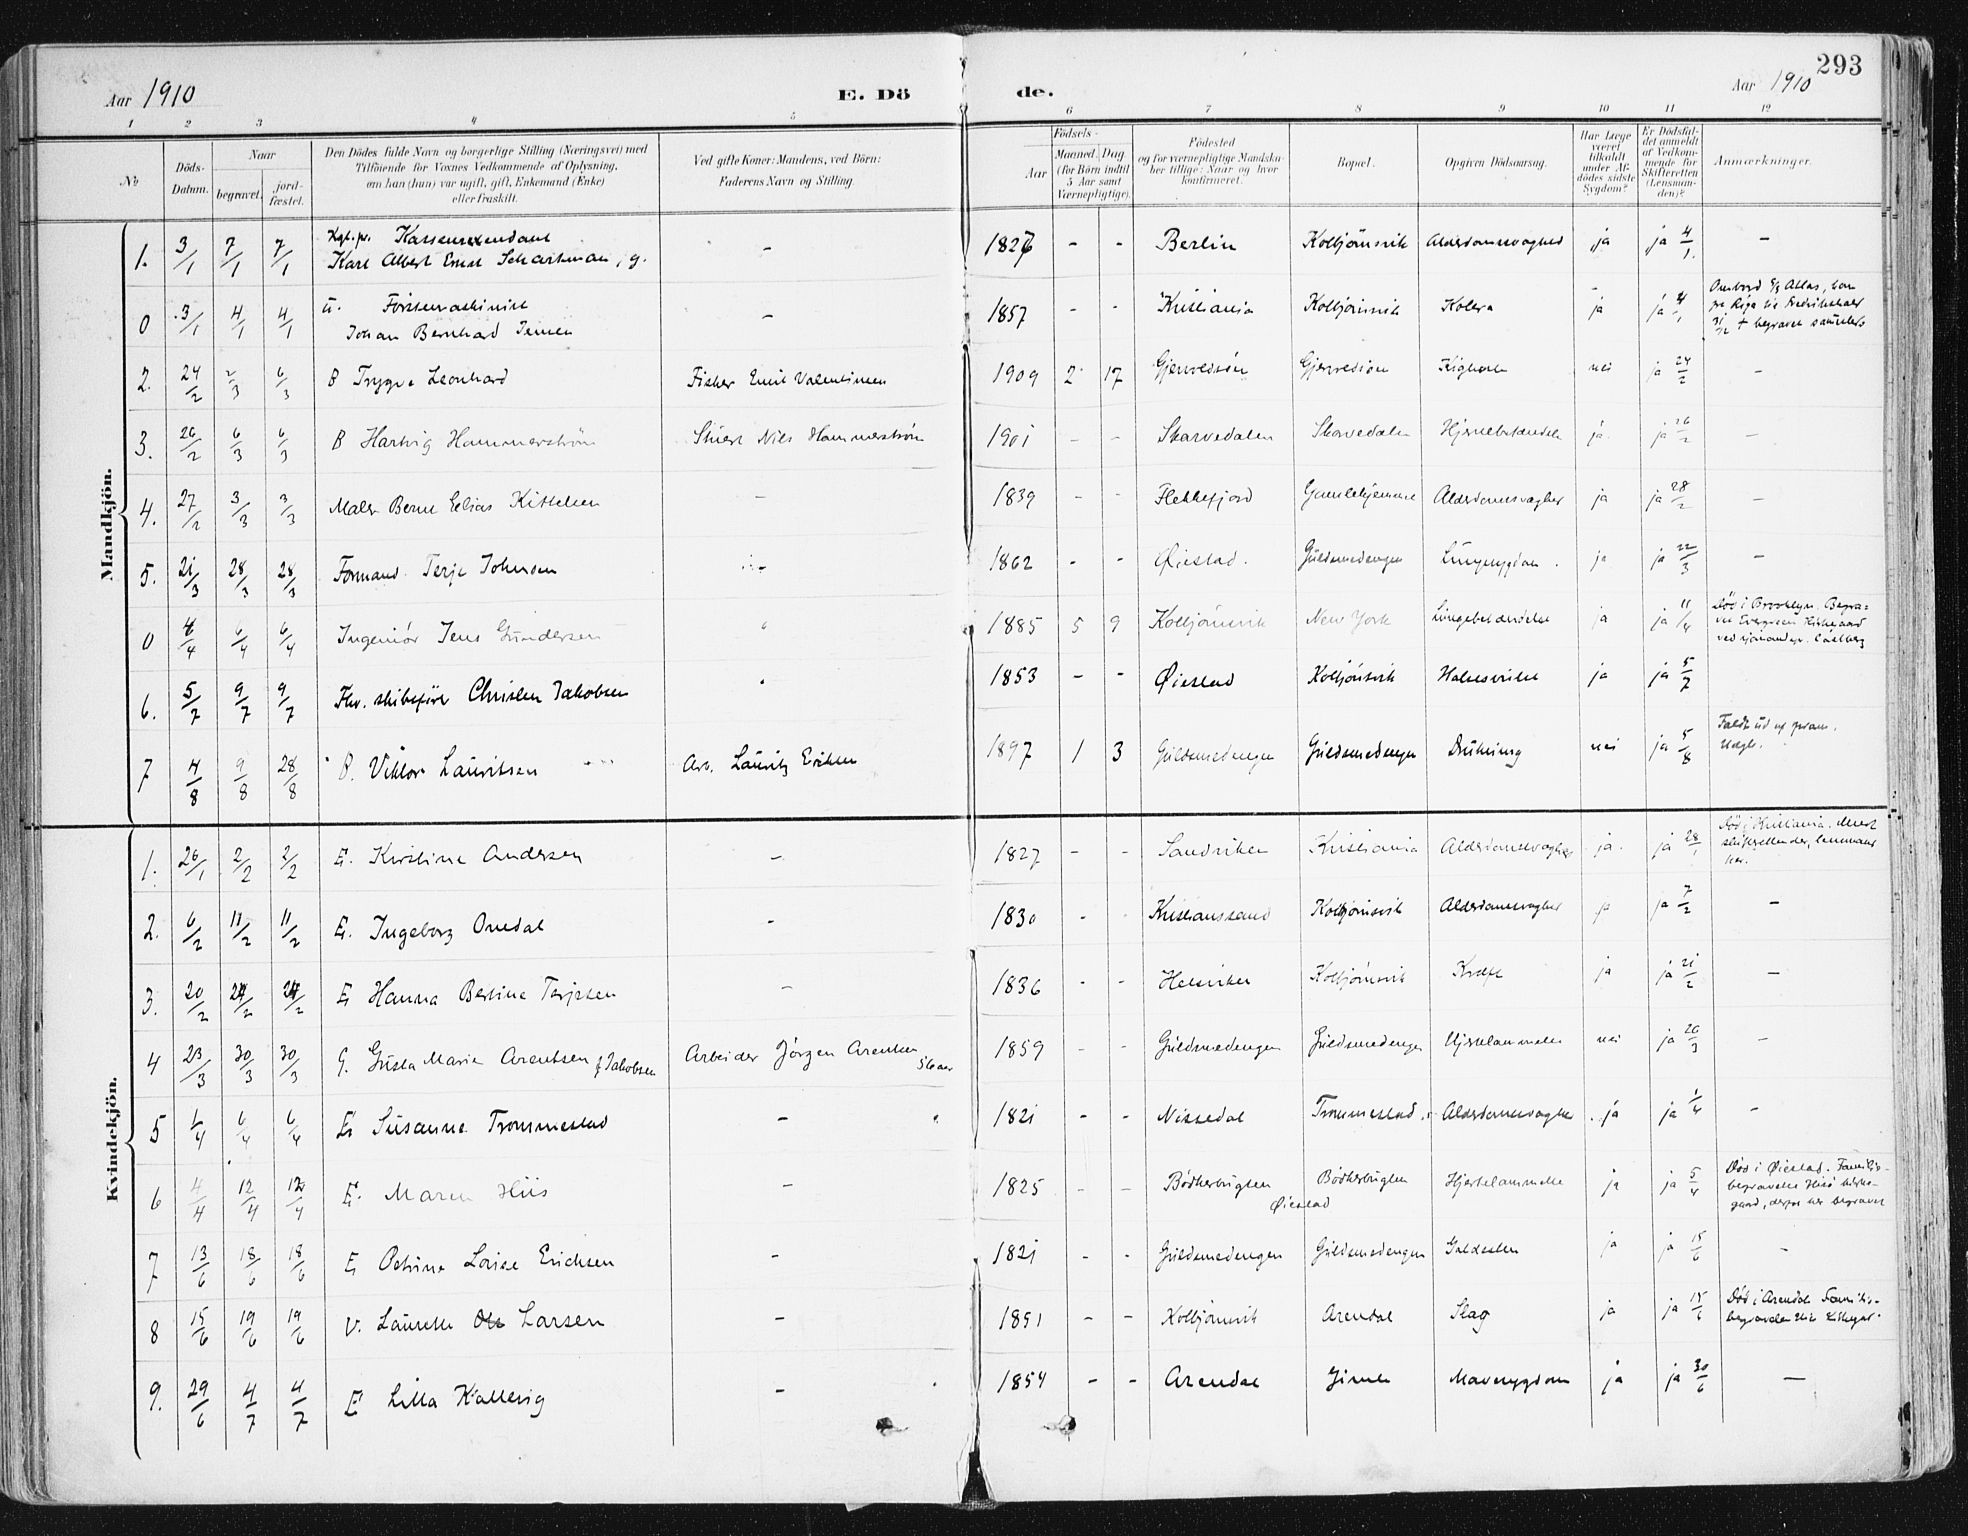 293
Aar 1910
E. Dö
de.
Aar 1910
1 2 3 4 5 6 7 8 9 10 11 12
No
Döds-
Datum.
Naar
begravet.
jord-
fæstet.
Den Dödes fulde Navn og borgerlige Stilling (Næringsvei) med
Tilföiende for Voxnes Vedkommende af Oplysning,
om han (hun) var ugift, gift, Enkemand (Enke)
eller fraskilt.
Ved gifte Koner: Mandens, ved Börn:
Faderens Navn og Stilling.
Födsels-
Aar
Maaned.
Dag
(for Börn indtil
5 Aar samt
Værnepligtige).
Födested
og for værnepligtige Mandska-
ber tillige: Naar og hvor
konfirmeret.
Bopæl.
Opgiven Dödsaarsag.
Har Læge
været
tilkaldt
under Af-
dödes sidste
Sygdom?
Er Dödsfal-
det anmeldt
af Vedkom-
mende for
Skifteretten
(Lensman-
den)?
Anmærkninger.
Mandkjön.
1. 3/1 7/1 7/1 Kgl. pr.
Karl Albert Ernst , g. - 1826 - - Berlin Kolbjörnsvik Alderdomssvaghed ja ja 4/1. -
0 3/1 4/1 4/1 u.
Johan Bernhard Jensen - 1857 - - Kristiania Kolbjörnsvik Kolera ja ja 4/1
Ombord Atlas,
Riga Fredrikshald
31/12 + begravet sammesteds
2. 24/2 2/3 6/3 B Trygve Leonhard Fisker Emil Valentinsen 1909 2 17 Gjervedsön Gjervedsön Kighoste nei ja 24/2 -
3. 26/2 6/3 6/3 B Hartvig Hammerström Nils Hammerström 1901 - - Skarvedalen Skarvedalen Hjernebetændelse ja ja 26/2 -
4. 27/2 3/3 3/3 Maler Bernt Elias Kittelsen - 1839 - - Flekkefjord Gamlehjemmet Alderdomssvaghet ja ja 28/2 -
5. 21/3 28/3 28/3 Formand Terje Johnsen - 1862 - - Øiestad. Guldsmedengen Lungesygdom. ja ja 22/3 -
0 4/4 6/4 6/4 Ingeniör Jens Gundersen 1885 5 9 Kolbjörnsvik New York Lungebetændelse ja ja 11/4
Död i Brooklyn. Begra-
vet Evergreen Kirkegaard
ved sjömandspr.
6. 5/7 9/7 9/7 Fhv. skibsförer Christen Jakobsen 1853 - - Øiestad Kolbjörnsvik ja ja 5/7
7 4/8 9/8 28/8 B. Viktor Lauritsen Arb. Lauritz Eriksen 1897 1 3 Guldsmedengen Guldsmedengen Drukning nei ja 5/8
Faldt ud af pram.
Kvindekjön.
1. 26/1 2/2 2/2 E. Kirstine Andersen - 1827 - - Sandviken Kristiania Alderdomssvaghet ja ja 28/1
Död i Kristiania.
2. 6/2 11/2 11/2 E. Ingeborg Omdal - 1830 - - Kristianssand Kolbjörnsvik Alderdomssvaghet ja ja 7/2 -
3. 20/2 24/2 24/2 E Hanna Bertine Terjesen - 1836 - - Helsviken Kolbjörnsvik Kræft ja ja 21/2 -
4 23/3 30/3 30/3 G. Gusta Marie Arentsen f Jakobsen Arbeider Jörgen Arentsen
1859 - - Guldsmedengen Guldsmedengen Hjertelammelse nei ja 26/3 -
5 1/4 6/4 6/4 E Susanne Trommestad - 1821 - - Nissedal Trommestad Alderdomssvaghet ja ja 1/4 -
6 4/4 12/4 12/4 E. Maren Hiis - 1825 - - Bödkerbugten Bödkerbugten
Øiestad
Hjertelammelse ja ja 5/4
Död i Øiestad. Familie-
begravelse Hisö kirke-
gaard, derfor her begravet
7 13/6 18/6 18/6 E Petrine Louise Erichsen - 1821 - - Guldsmedengen Guldsmedengen Galdesten ja ja 15/6 -
8 15/6 19/6 19/6 V. Laurette Larsen - 1851 - - Kolbjörnsvik Arendal Slag ja ja 15/6
Död i Arendal Familie-
9. 29/6 4/7 4/7 E Lilla Kallevig - 1854 - - Arendal Mavesygdom ja ja 30/6 -